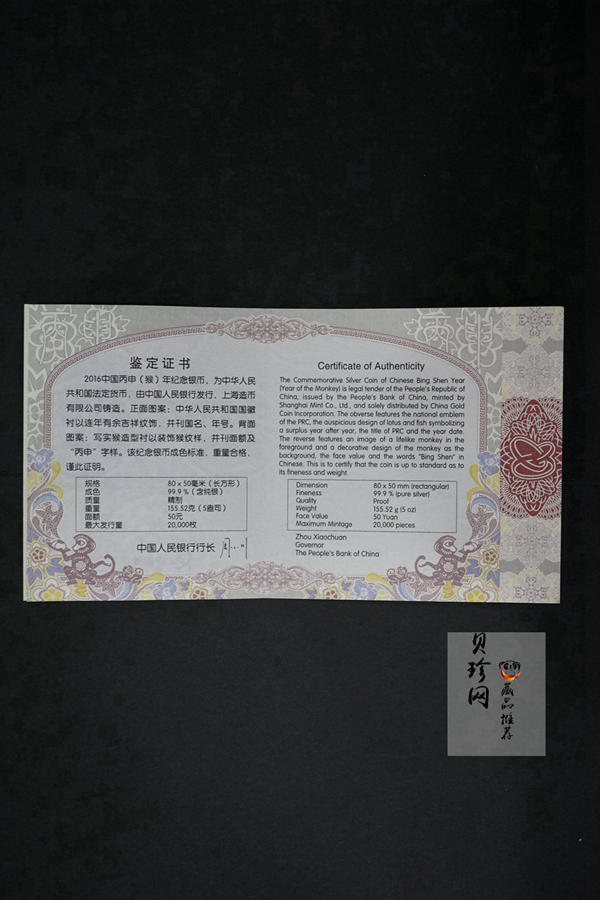 鉴定证书
2016中国丙申（猴）年纪念银币，为中华人民
共和国法定货币，由中国人民银行发行，上海造币
有限公司铸造。正面图案：中华人民共和国国徽
衬以连年有余吉祥纹饰，并刊国名、年号。背面
图案：写实猴造型衬以装饰猴纹样，并刊面额及
“丙申”字样。该纪念银币成色标准，重量合格，
谨此证明。
规格 80 x 50毫米（长方形）
成色 99.9％（含纯银）
质量 精制
重量 155.52克（5盎司）
面额 50元
最大发行量 20,000枚
中国人民银行行长
Certificate of Authenticity
The Commemorative Silver Coin of Chinese Bing Shen Year
(Year of the Monkey) is legal tender of the People's Republic of
China, issued by the People's Bank of China, minted by
Shanghai Mint Co., Ltd., and solely distributed by China Gold
Coin Incorporation. The obverse features the national emblem
of the PRC, the auspicious design of lotus and fish symbolizing
a surplus year after year, the title of PRC and the year date.
The reverse features an image of a lifelike monkey in the
foreground and a decorative design of the monkey as the
background, the face value and the words "Bing Shen" in
Chinese. This is to certify that the coin is up to standard as to
its fineness and weight.
Dimension 80 x 50 mm (rectangular)
Fineness 99.9 % (pure silver)
Quality Proof
Weight 155.52 g (5 oz)
Face Value 50 Yuan
Maximum Mintage 20,000 pieces
Zhou Xiaochuan
Governor
The People's Bank of China
贝珍网
藏品推荐